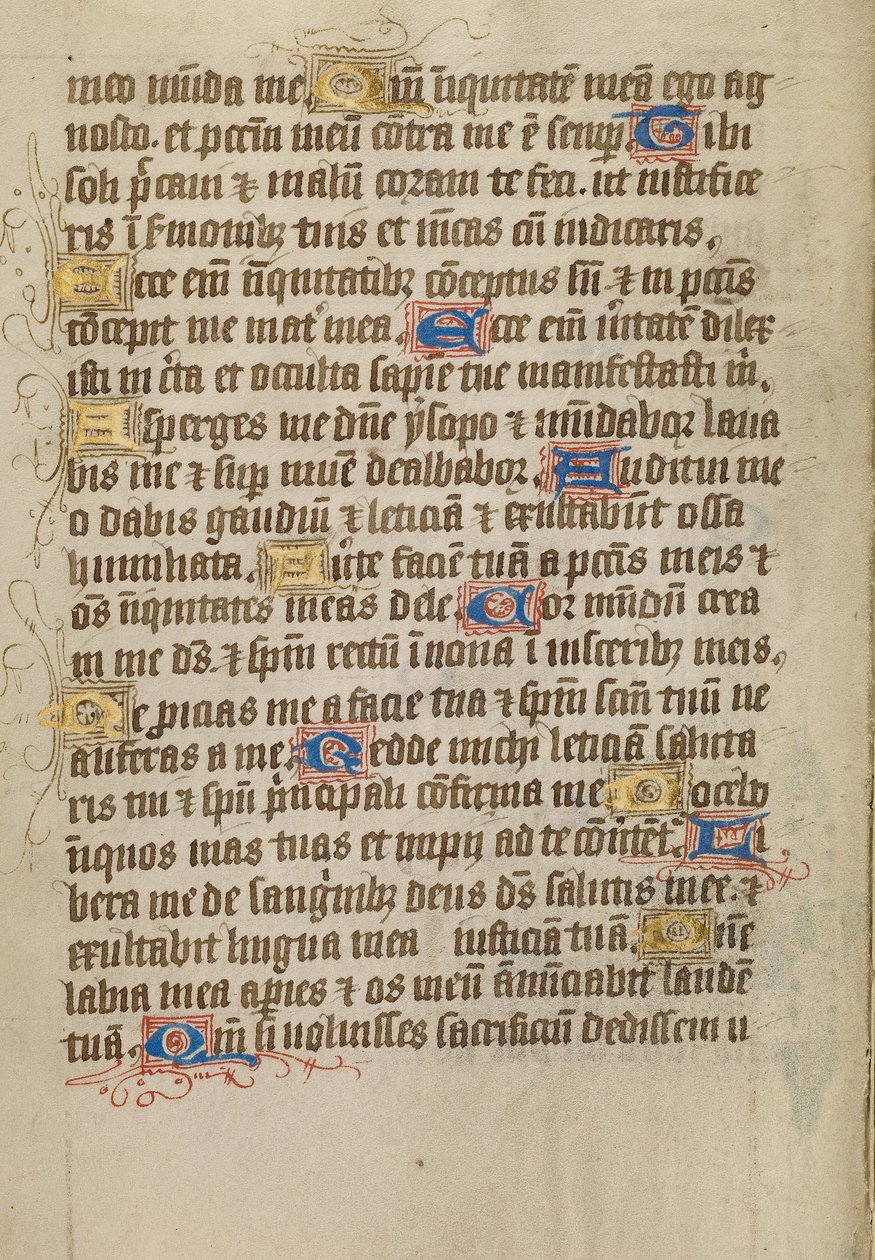 meo mūda me. Qm̄ īiquitatē meā ego ag
nosco. et pccm̄ meū cōtra me ē semꝑ. Tibi
soli p̄ccaui ⁊ malū coram te feci. ut iustifice
ris ī ẜmonibꝫ tuis et uīcas cū iudicaris.
Ecce em̄ īiquitatibꝫ cōceptus sū ⁊ in pccīs
cōcepit me mat̓ mea. Ecce em̄ u̓itatē dilex
isti in ic̄ta et occulta sapīe tue manifestasti m̄.
Asperges me dn̄e ysopo ⁊ mūdabor laua
bis me ⁊ suꝑ niuē dealbabor. Auditui me
o dabis gaudiū ⁊ leticiā ⁊ exultabūt ossa
humiliata. Au̓te faciē tuā a pccīs meis ⁊
oēs īiquitates meas dele. Cor mūdū crea
in me ds̄. ⁊ spm̄ rectū īnoua ī uisceribꝫ meis.
Ne ꝓicias me a facie tua ⁊ spm̄ scm̄ tuū ne
auferas a me. Redde michi leticiā saluta
ris tui ⁊ spū pͥncipali cōfirma me. Docebo
īiquos uias tuas et impij ad te cōu̓tēt̉. Li
bera me de sangͥnibꝫ deus ds̄ salutis mee. ⁊
exultabit lingua mea iusticiā tuā. Dn̄e
labia mea apies ⁊ os meū ānūciabit laudē
tuā. Qm̄ si uoluisses sacrificiū dedissem u